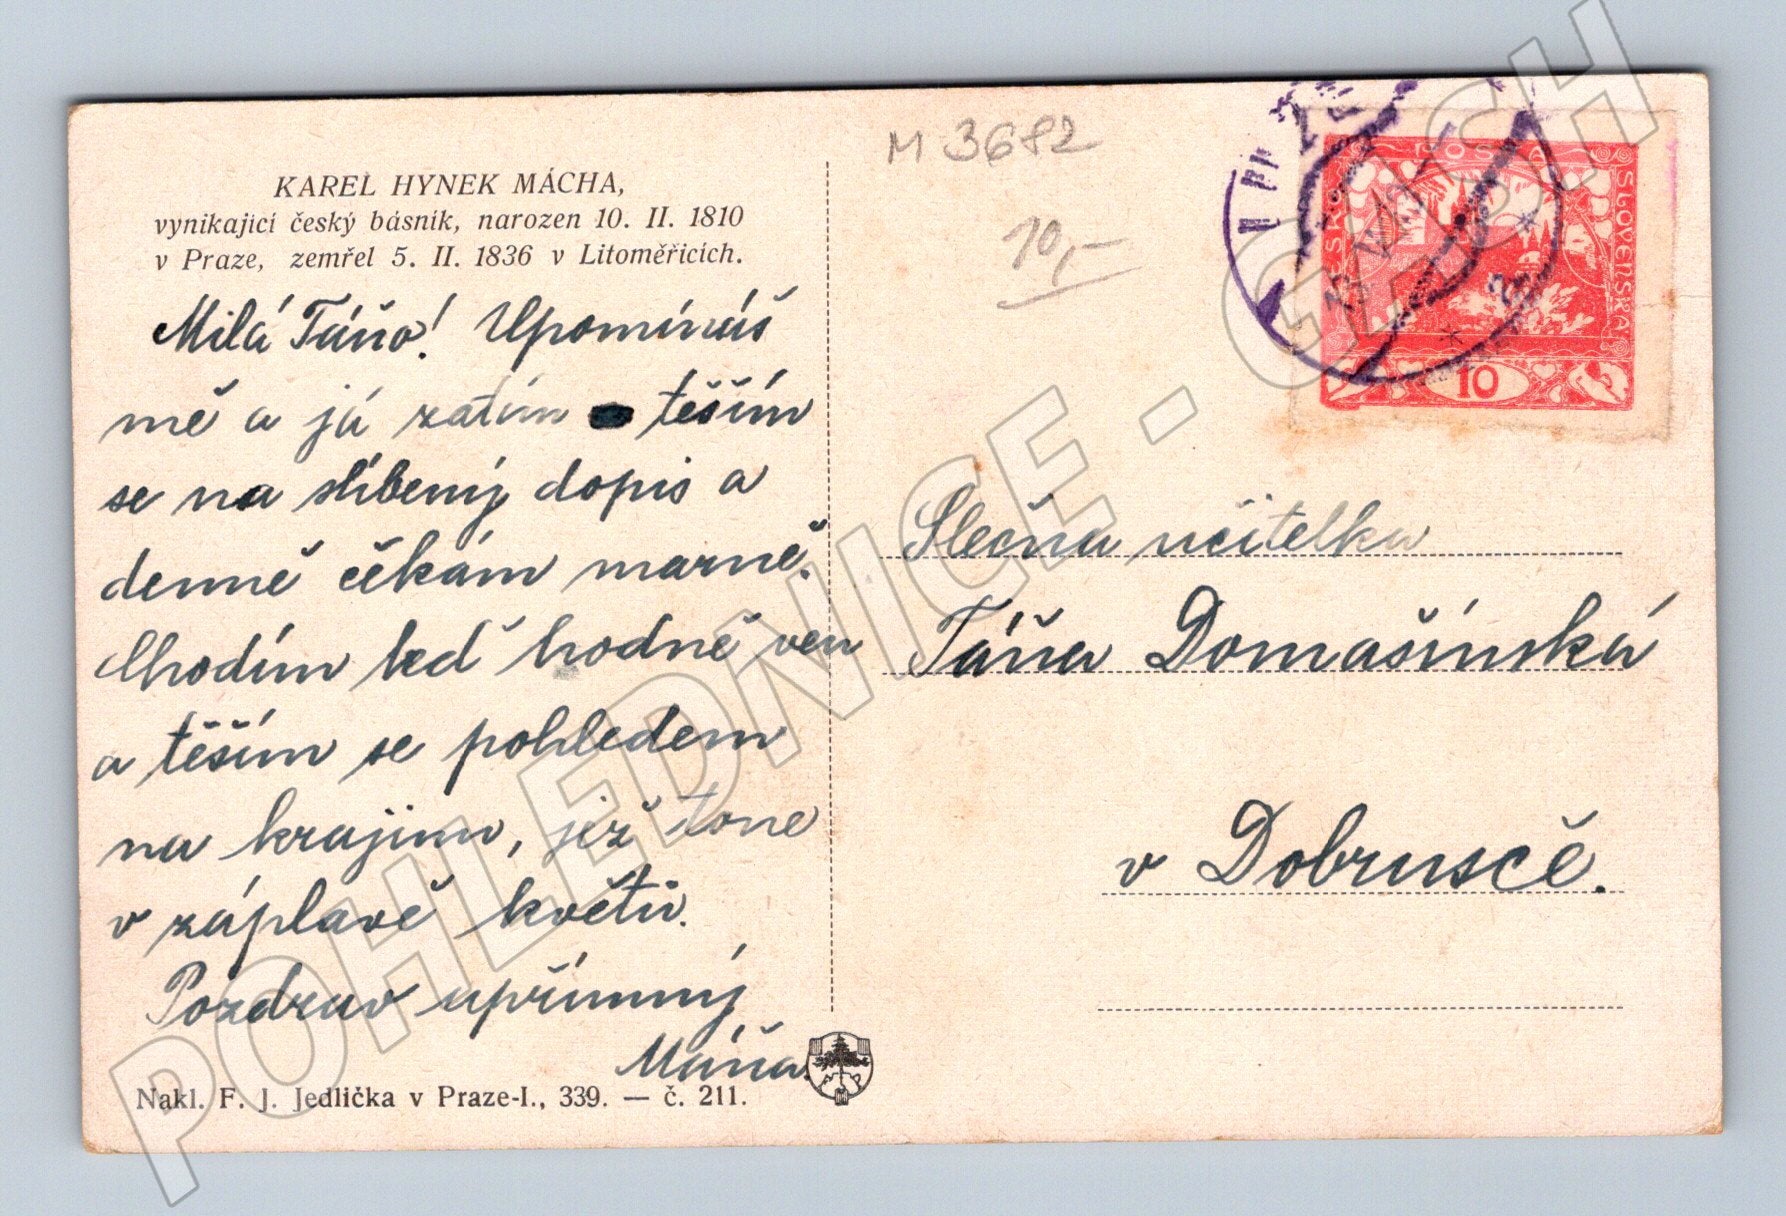 KAREL HYNEK MÁCHA,
vynikající český básník, narozen 10. II. 1810
v Praze, zemřel 5. II. 1836 v Litoměřicích.
Milá Táňo! Upomínáš
mě a já zatím těším
se na slíbený dopis a
denně čěkám marně.
Chodím teď hodně ven
a těším se pohledem
na krajinu, jež tone
v záplavě květů.
Pozdrav upřímný
Máňa.
Nakl. F. J. Jedlička v Praze-I., 339. — č. 211.
M 3682
10,-
ČESKO
SLOVENSKÁ
10
Slečna učitelka
Táňa Domašínská
v Dobrušce.
POHLEDNICE - CZ